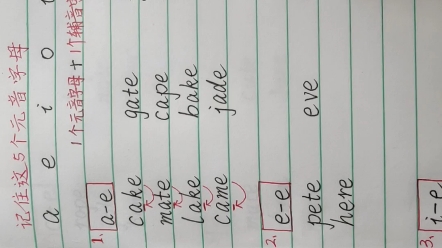 记住这5个元音字母
a e i o
1个元音字母+1个辅音
1. a-e
cake gate
mate cape
lake bake
came jade
2. e-e
pete eve
here
3. i-e